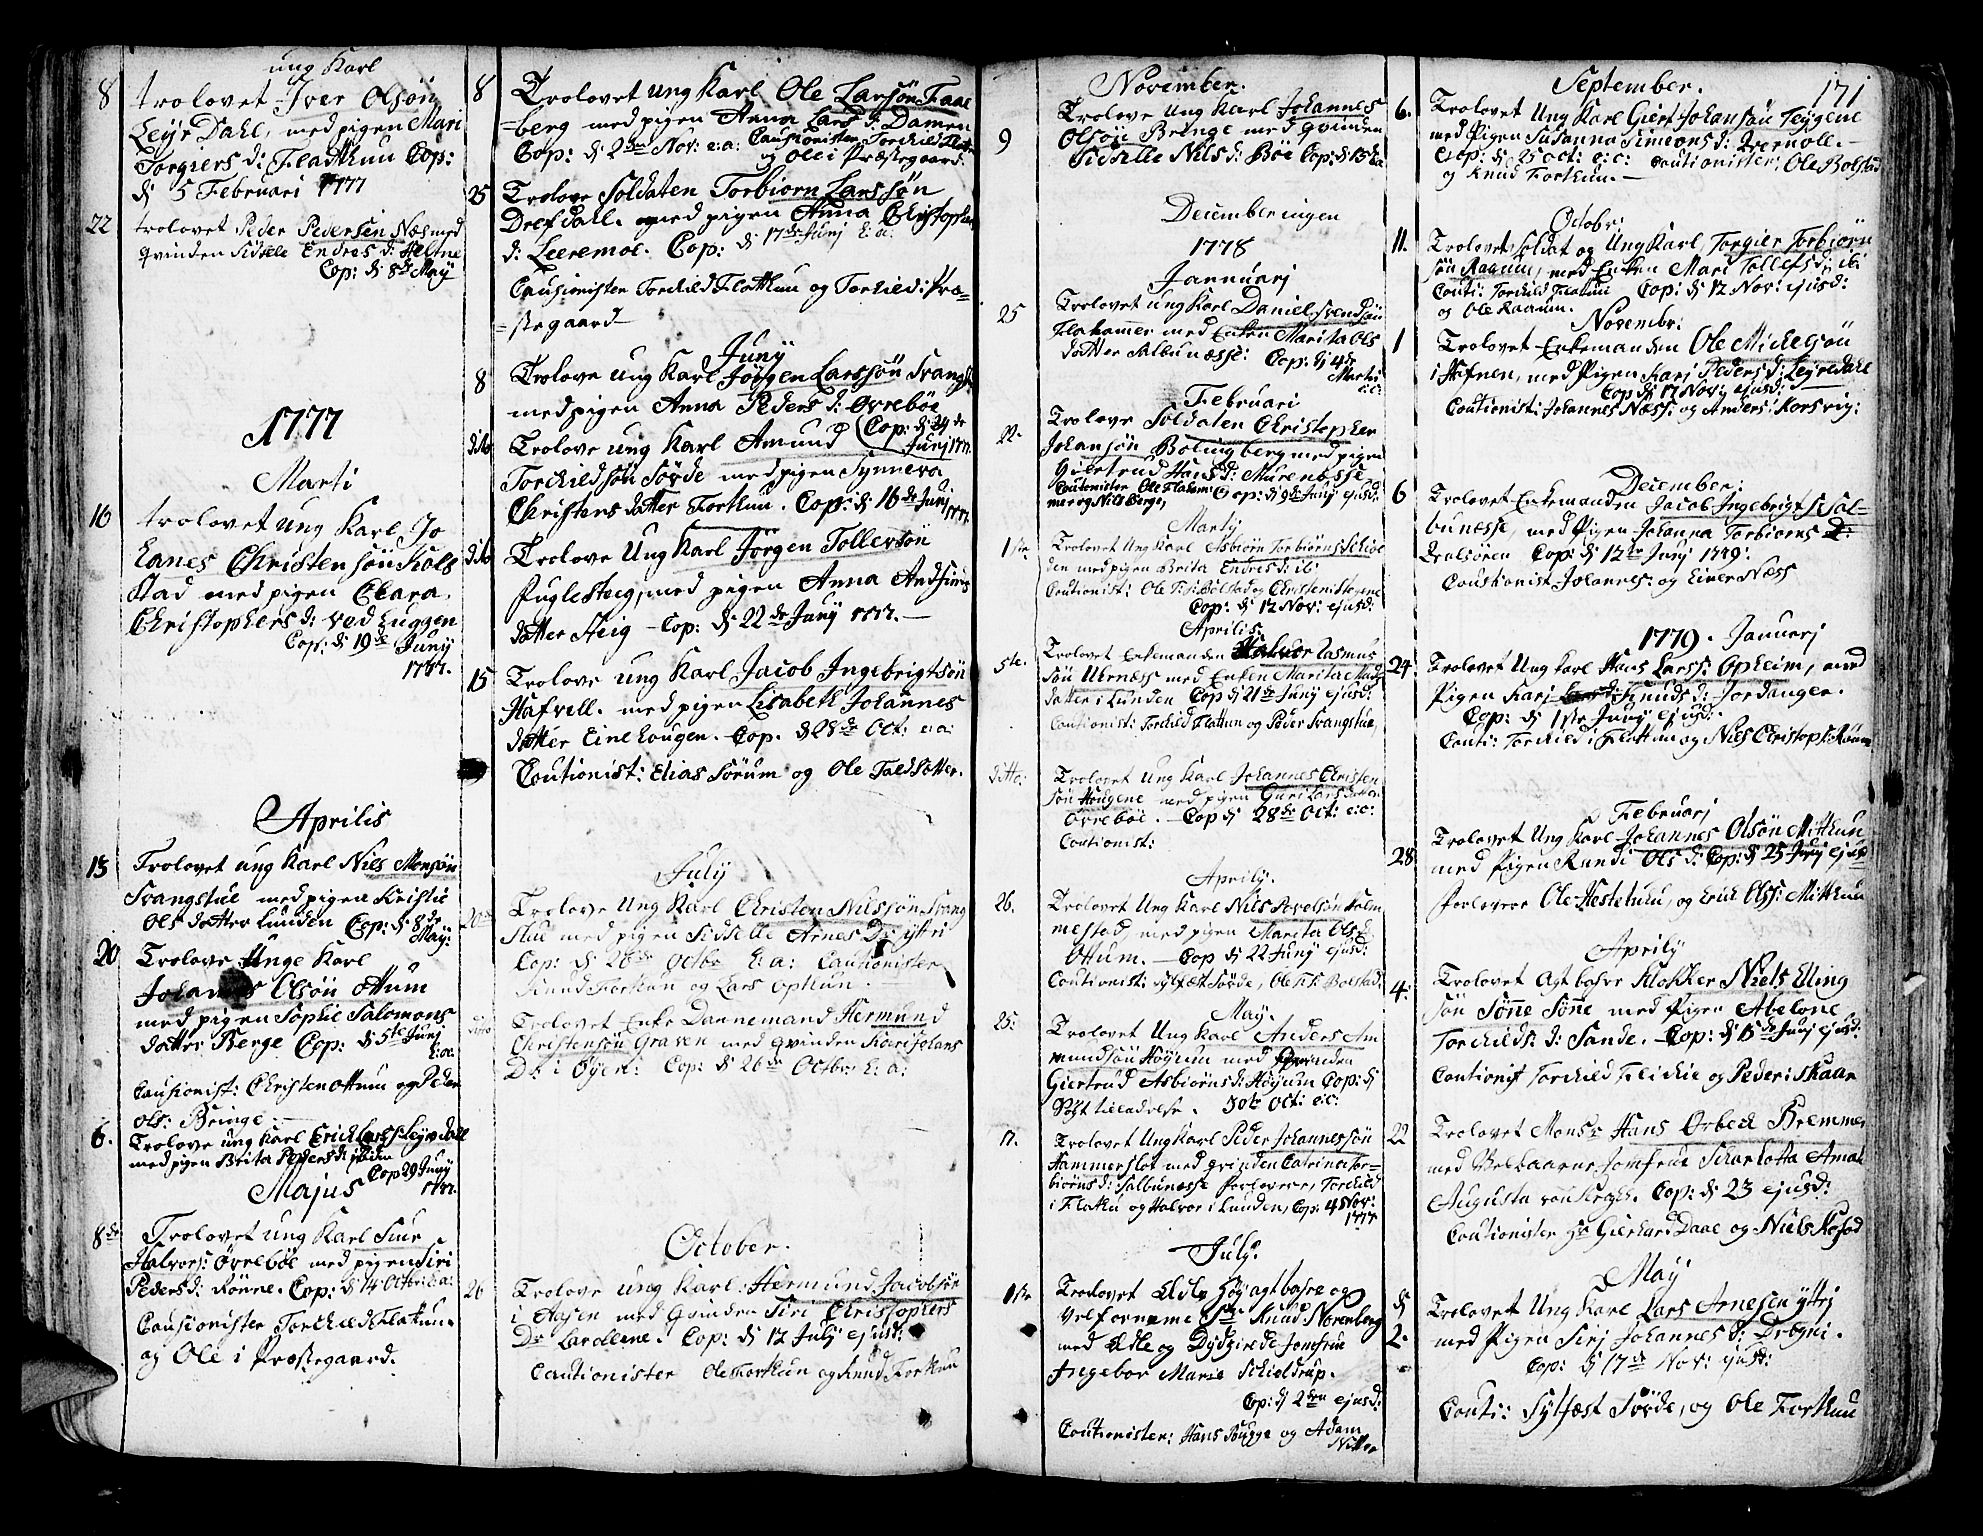 ung Karl
8 trolovet Iver Olsøn
Leyr Dahl, med pigen Mari
Torgiers d: Flathun Cop:
d 5 Februari 1777
22 trolovet Peder Pedersen Næs med
qvinden Sidsele Endres d:
Cop: d 8de May
1777
Marti
16 trolovet ung Karl Jo
hanes Christensøn Kols
stad med pigen Clara
Christophers d: ved Luggen
Cop: d 19de Juny
1777.
Aprilis
13 Trolovet ung Karl Niels Monsøn
Svangstue med pigen Kristie
Ols datter Lunden Cop: d 8de
May:
20 Trolove Unge Karl
Johannes Olsøn Ottum
med pigen Sophie Salomons
datter Berge Cop: d 5te Junj
E:a:
Causionist: Christen Ottum og Peder
Ols: Bringe
6. Trolove ung Karl Erich Larss: Leyrdall
med pigen Brita Peders d: ibidm
Cop 29 Juny
1777.
Majus
8de Trolovet ung Karl Siur
Halvors: Øvrebøe med pigen Siri
Peders d: Rønne. Cop: d 14 Octbr: E:a:
Causionister Torchild Flatkun
og Ole i Præstegaard.
8 Trolovet ung Karl Ole Larsøn Faae
=berg med pigen Anna Lars d: Damen
Cop: d 2den Nov: e:a: Causionister Torchild Flatt
og Ole i Præstegaard.
25 Trolove Soldaten Torbiørn Larssøn
Drefdall. med pigen Anna Christophers
d: Leeremoe. Cop: d 17de Junj E:a:
Causionister Torchild Flathun og Torchild i Præ=
=stegaard
Juny
8 Trolove ung Karl Jørgen Larssøn Svangst:
med pigen Anna Peders d: Øvrebøe
Cop: d 24de
Junj 1777.
dito Trolove ung Karl Amund
Torchildsøn Sørde med pigen Synneva
Christens datter Forthun. Cop: d 16de Junj
1777.
dito Trolove Ung Karl Jørgen Tollefsøn
Fuglesteeg, med pigen Anna Andfinns
datter Steig - Cop: d 22de Juny 1777.
15 Trolove ung Karl Jacob Ingebrigtsøn
Hafvell. med pigen Lisabeth Johannes
datter Einehougen. Cop. d 28de Oct: e:a:
Cautionist: Elias Sørum og Ole Faldsetter.
July
20de Trolove Ung Karl Christen Nilsøn Svang
stue med pigen Sidselle Arnes Dr ÿttri
Cop: d 26de Octbr E:a: Cautionister
Knud Forthun og Lars Opthun.
ditto Trolovet Enke Dannemand Hermund
Christensøn Graven med qvinden Kari Johans
Dr i Øyen: Cop: d 26de Octbr: E:a:
October.
26 Trolove ung Karl: Hermund Jacobsøn
i Aasen med qvinden Siri Christophers
Dr Lærdlene. Cop: d 12 Julj ejusd:
Cautionister Ole Forthun og Knud Forthun
November.
9 Trolove Ung Karl Johannes
Olsøn Bringe med qvinden
Sidselle Nils d: Bøe Cop: d 15
December ingen
1778
Januarj
25 Trolovet ung Karl Daniel Svendsøn
Flahamer med Enken Marita Ols
datter Salbunæsse: Cop: d 4de
Martij
e:c:
Februari
22. Trolove Soldaten Christopher
Johansøn Bolingberg med pigen
Giertrud Hans d: Murenæsse
Cautionister Ole Flaham:
mer og Nils Berge, Cop: d 9de Junj ejusd:
Martij
1ste Trolovet Ung Karl Asbiørn Torbiørns Schiol
den med pigen Brita Endres d: ib:
Cautionist: Ole T: s: Bolstad og Christen
Cop: d 12 Nov: ejusd:
Aprilis:
5te. Trolovet Enkemanden Halvor Rasmus
søn Uernæss med Enken Marita Mads
datter i Lunden Cop d 21de Junij ejusd:
Cautionist: Torchild Flathun og Peder Svangstue,
ditto: Trolovet Ung Karl Johannes Christen
søn Hougene med pigen Guri Lars datter
Øvrebøe. - Cop d 28de Oct: e:c:
Cautionist:
Aprily.
26. Trolovet Ung Karl Nils Povelsøn Halm
mested, med pigen Marita Ols d
Ottum. - Cop d 22 Junij ejusd:
Cautionist: Sylfæst Sørde, Ole T: s: Bolstad.
May.
25: Trolovet Ung Karl Anders Am
mundsøn Høÿum med qvinden
Giertrud Asbiørns d: Høÿum Cop: d
30te Oct: e:c:
17. Trolovet Ung Karl Peder Johannessøn
Hammerslot med qvinden Catrina Tor=
biørns d: Salbunæsse Forlovere, Torchild
i Flathu og Halvor i Lunden, Cop: 4 Nov:
1777
July.
1ste Trolovet Ædle Høÿagtbahre og
Velfornemme Sr Knud Norenberg
med Ædle og Dydziirede Jomfrue
Ingebor Marie Schieldrup.
Cop: d 2den ejusd:
Cautionister: Hans Bugge og Adam
Nitter
171
September.
6. Trolovet Ung Karl Giert Johansøn Teÿgene
med Pigen Susanna Simeons d:
Cop: d 25 oct: e:c: Cautionister: Ole Bolstad
og Knud Forthun.
Octobr:
11. Trolovet Soldat og Ung Karl Torgier Torbiørn
søn Raaum, med Enken Mari Tollefs d: ib:
Couti: Torchild Flatum Cop: d 12 Nov: ejusd:
og Ole Raaum.
Novembr:
1 Trolovet Enkemanden Ole Mickelsøn
i Hafnen, med Pigen Kari Peders d: Leyredahl
Cop d 17 Nov: ejusd:
Coutionist: Johannes Næss: og Anders: Korsvig:
December:
6 Trolovet Enkemanden Jacob Ingebrigts: Sal=
bunæsse, med Pigen Johanna Torbiørns d:
Cop: d 12te Junj 1779.
Coutionist: Johannes: og Einer Næss
1779. Januarj
24. Trolovet Ung Karl Hans Larss: Opheim, med
Pigen Kari Knuds d: Jordanger.
Cop: d 1ste Junÿ ejusd:
Couti: Torchild i Flattun og Niels Christophs: Røum
Februarj
28 Trolovet Ung Karl Johannes Olsøn Mitthun
med Pigen Randi Ols d: Cop: d 25 Junj ejusd
Forlovere Ole Hestetunu, og Erich Olss: Mitthun
Aprilÿ
4. Trolovet Agtbahre Klokker Niels Elling
søn Sønne Sønne med Pigen Abelone
Torchilds: d: Sande. Cop: d 15de Junj ejusd:
Coutionist Torchild Flickie og Peder i Skaar
22 Trolovet Monsr Hans Ørbech Bremmer
med Velbaarne Jomfrue Scharlotta Amal
Augusta von Krogh. Cop: d 23 ejusd:
Coutionister Hr Gierhard Daae og Niels Kosod
May
d 2. Trolovet Ung Karl Lars Arnesen ÿttrj
med Pigen Sirj Johannes d: Drægni.
Cop: d 17de Nov: ejusd:
Couti: Sylfæst Sørde, og Ole Forthun